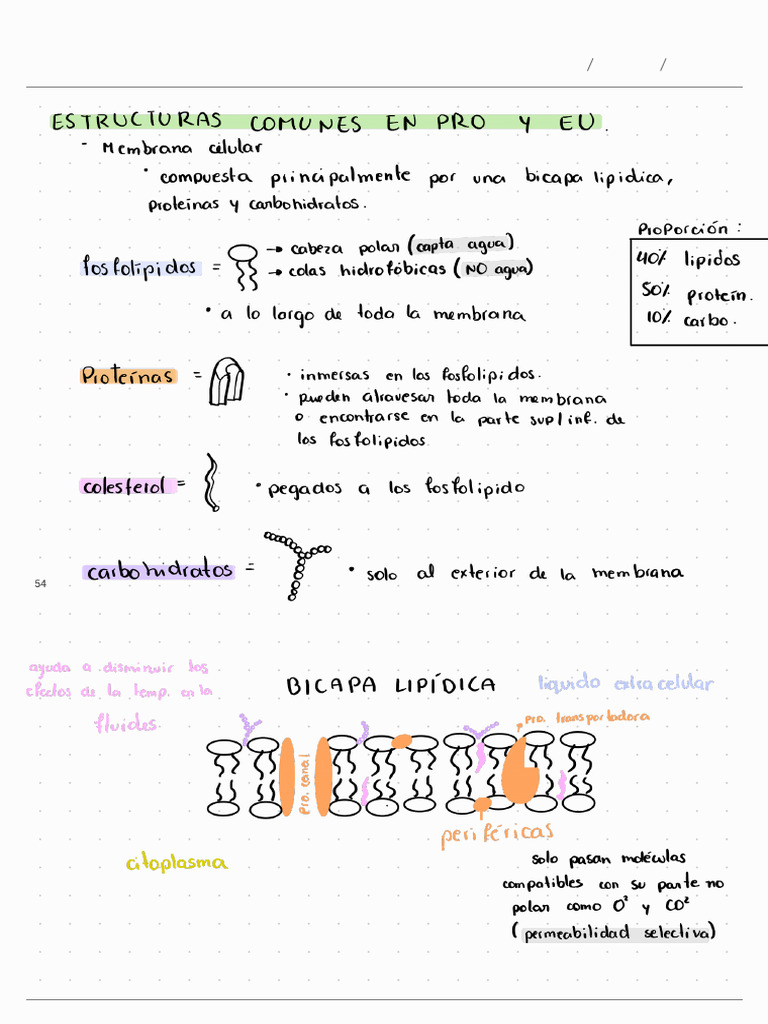 / /
ESTRUCTURAS COMUNES EN PRO Y EU.
- Membrana célular
• compuesta principalmente por una bicapa lipidica,
proteínas y carbohidratos.
Proporción :
40% lipidos
50% protein.
10% carbo.
fosfolípidos = → cabeza polar (capta agua)
→ colas hidrofóbicas (NO agua)
• a lo largo de toda la membrana
Proteínas = • inmersas en los fosfolipidos.
• pueden atravesar toda la membrana
o encontrarse en la parte sup/inf. de
los fosfolipidos.
colesterol = • pegados a los fosfolipido
carbohidratos = • solo al exterior de la membrana
54
ayuda a disminuir los
efectos de la temp. en la
fluides.
BICAPA LIPÍDICA
liquido extracelular
Pro. transportadora
Pro. canal
periféricas
citoplasma
solo pasan moléculas
compatibles con su parte no
polar como O² y CO²
(permeabilidad selectiva)